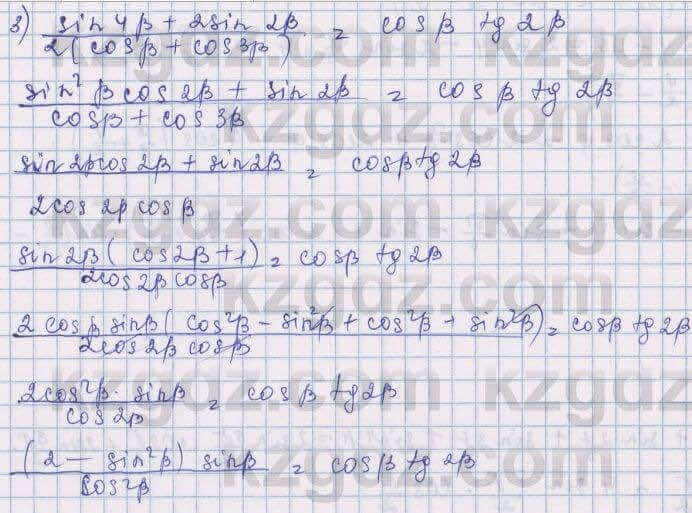 3) (sin 4β + 2sin 2β) / (2(cosβ + cos3β)) = cosβ tg 2β
(sin² β cos 2β + sin 2β) / (cosβ + cos 3β) = cos β tg 2β
(sin 2β cos 2β + sin 2β) / (2cos 2β cosβ) = cosβ tg 2β
(sin 2β (cos2β + 1)) / (2cos 2β cosβ) = cosβ tg 2β
(2 cosβ sinβ (cos²β - sin²β + cos²β + sin²β)) / (2cos 2β cosβ) = cosβ tg 2β
(2cos²β · sinβ) / (cos 2β) = cos β tg2β
((2 - sin²β) sinβ) / (cos2β) = cosβ tg 2β
kzgdz.com kzgdz.com
kzgdz.com kzgdz.com
kzgdz.com kzgdz.com
kzgdz.com kzgdz.com
kzgdz.com kzgdz.com
kzgdz.com kzgdz.com